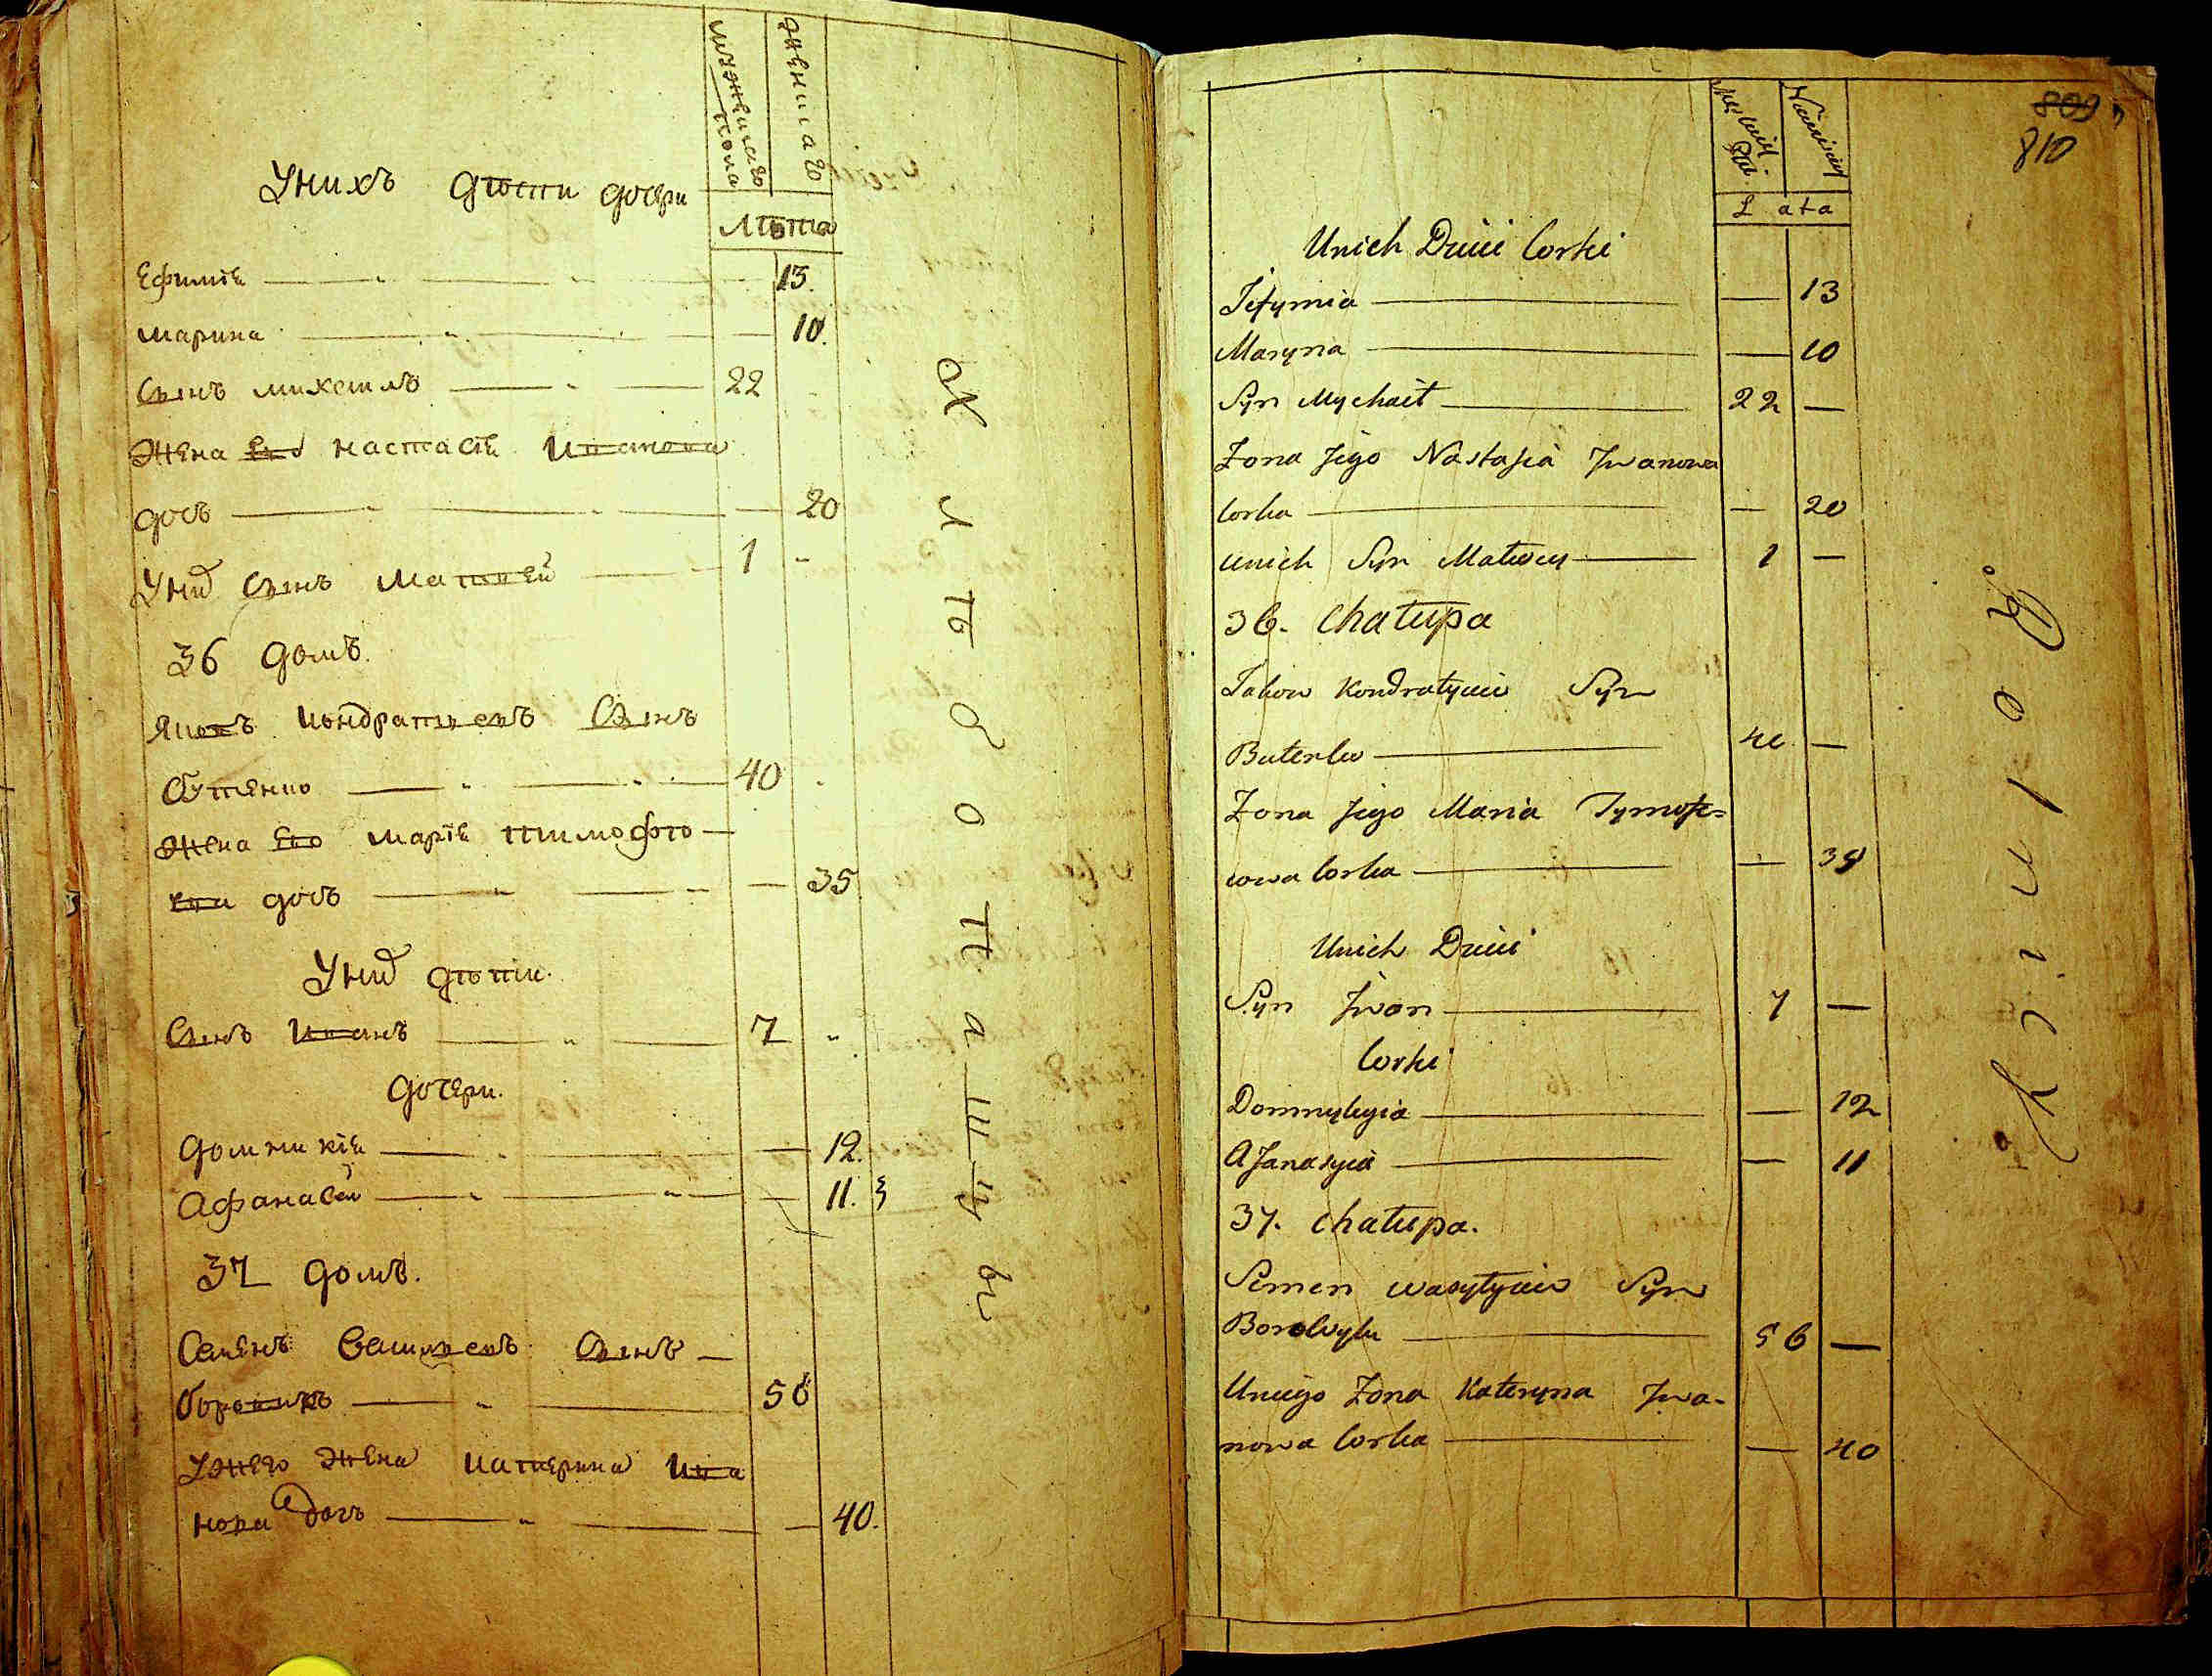 мужеска пола
женска
лѣта
Унихъ дѣти дочери
Ефимія 13.
марина 10.
Сынъ михаилъ 22
жена Его настасія Иванова
дочь 20
Унихъ Сынъ Матвей 1
36 домъ.
Яковъ Кондратьевъ Сынъ
бутенко 40
жена Его марія тимофѣе
ева дочь 35
Унихъ дѣти.
Сынъ Иванъ 7
дочери.
домникія 12.
афанасія 11.
37 домъ.
Семенъ Васильевъ Сынъ
боровикъ 56
Унего жена катерина Ива
нова дочь 40.
809
810
Lata
Unich Dzieci Corki
Jefymia 13
Maryna 10
Syn Mychaił 22
Zona Jego Nastasia Jwanowa
Corka 20
Unich Syn Matwey 1
36. Chałupa
Jakow Kondratyiew Syn
Butenko 40
Zona Jego Maria Tymofie=
iowa Corka 35
Unich Dzieci
Syn Jwan 7
Corki
Domnykyia 12
Afanasyia 11
37. Chałupa.
Semen Wasylyiew Syn
Borowyk 56
Uniego Zona Kateryna Jwa-
nowa Corka 40